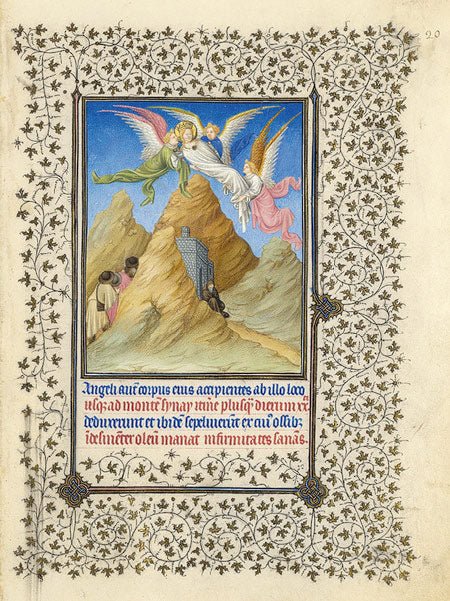 20
Angeli aut̄ corpus eius accipientes ab illo loco
usqꝫ ad montē synay itinē plusqꝫ dierum xx
deduxerunt et ibidē sepelierunt ex cuiꝰ ossibꝫ
īdesinēter oleū manat infirmitates sanās.